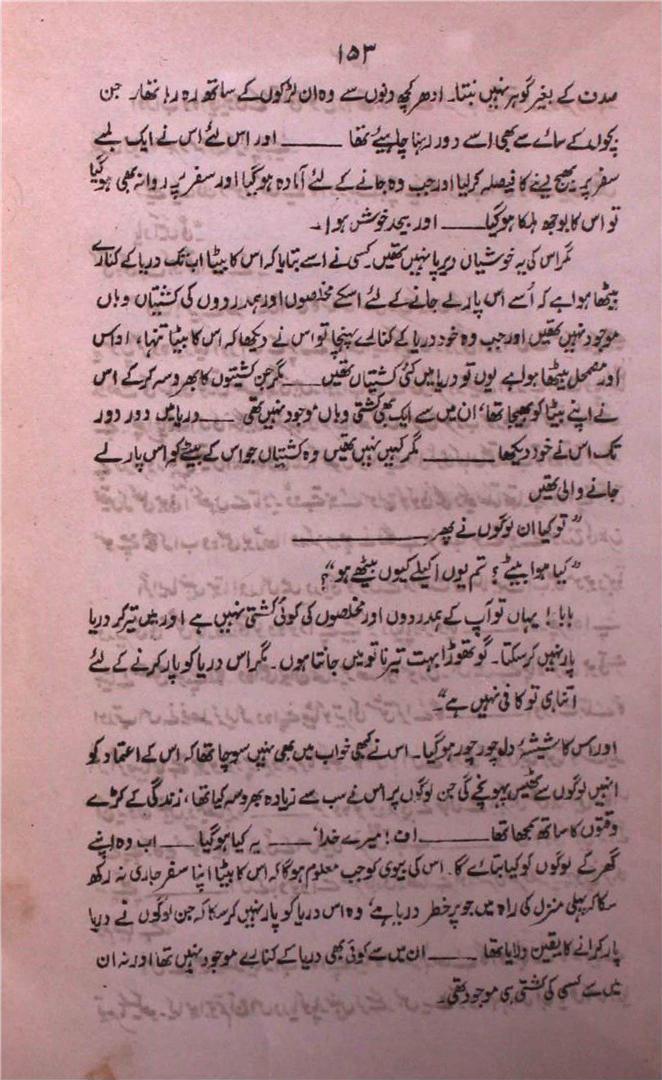 ۱۵۳
صدف کے بغیر گوہر نہیں بنتا۔ ادھر کچھ دنوں سے وہ ان لڑکوں کے ساتھ رہ رہا تھا۔ جن
کے سائے سے بھی اسے دور رہنا چاہیئے تھا ـــــــ اور اس لئے اس نے ایک لمبے
سفر پر بھیج دینے کا فیصلہ کر لیا اور جب وہ جانے کے لئے آمادہ ہو گیا اور سفر پر روانہ بھی ہو گیا
تو اس کا بوجھ ہلکا ہو گیا ـــــــ اور بیحد خوش ہوا۔
مگر اس کی یہ خوشیاں دیرپا نہیں تھیں۔ کسی نے اسے بتایا کہ اس کا بیٹا اب تک دریا کے کنارے
بیٹھا ہوا ہے کہ اُسے اس پار لے جانے کے لئے اسکے مخلصوں اور ہمدردوں کی کشتیاں وہاں
موجود نہیں تھیں اور جب وہ خود دریا کے کنارے پہنچا تو اس نے دیکھا کہ اس کا بیٹا تنہا، اداس
اور مضمحل بیٹھا ہوا ہے یوں تو دریا میں کئی کشتیاں تھیں ـــــــ مگر جن کشتیوں کا بھروسہ کر کے اس
نے اپنے بیٹا کو بھیجا تھا، ان میں سے ایک بھی کشتی وہاں موجود نہیں تھی ـــــــ دریا میں دور دور
تک اس نے خود دیکھا ـــــــ مگر کہیں نہیں تھیں وہ کشتیاں جو اس کے بیٹے کو اس پار لے
جانے والی تھیں
"تو کیا ان لوگوں نے پھر ـــــــ
"کیا ہوا بیٹے؟ تم یوں اکیلے کیوں بیٹھے ہو"؟
بابا! یہاں تو آپ کے ہمدردوں اور مخلصوں کی کوئی کشتی نہیں ہے اور میں تیر کر دریا
پار نہیں کر سکتا۔ گو تھوڑا بہت تیرنا تو میں جانتا ہوں۔ مگر اس دریا کو پار کرنے کے لئے
اتنا ہی تو کافی نہیں ہے"۔
اور اس کا شیشۂ دل چور چور ہو گیا۔ اس نے کبھی خواب میں بھی نہیں سوچا تھا کہ اس کے اعتماد کو
انہیں لوگوں سے ٹھیس پہونچے گی جن لوگوں پر اس نے سب سے زیادہ بھروسہ کیا تھا، زندگی کے کڑے
وقتوں کا ساتھ سمجھا تھا ـــــــ اف! میرے خدا' ـــــــ یہ کیا ہو گیا ـــــــ اب وہ اپنے
گھر کے لوگوں کو کیا بتائے گا۔ اس کی بیوی کو جب معلوم ہو گا کہ اس کا بیٹا اپنا سفر جاری نہ رکھ
سکا کہ پہلی منزل کی راہ میں جو پر خطر دریا ہے' وہ اس دریا کو پار نہیں کر سکا کہ جن لوگوں نے دریا
پار کرانے کا یقین دلایا تھا ـــــــ ان میں سے کوئی بھی دریا کے کنارے موجود نہیں تھا اور نہ ان
میں سے کسی کی کشتی ہی موجود تھی۔